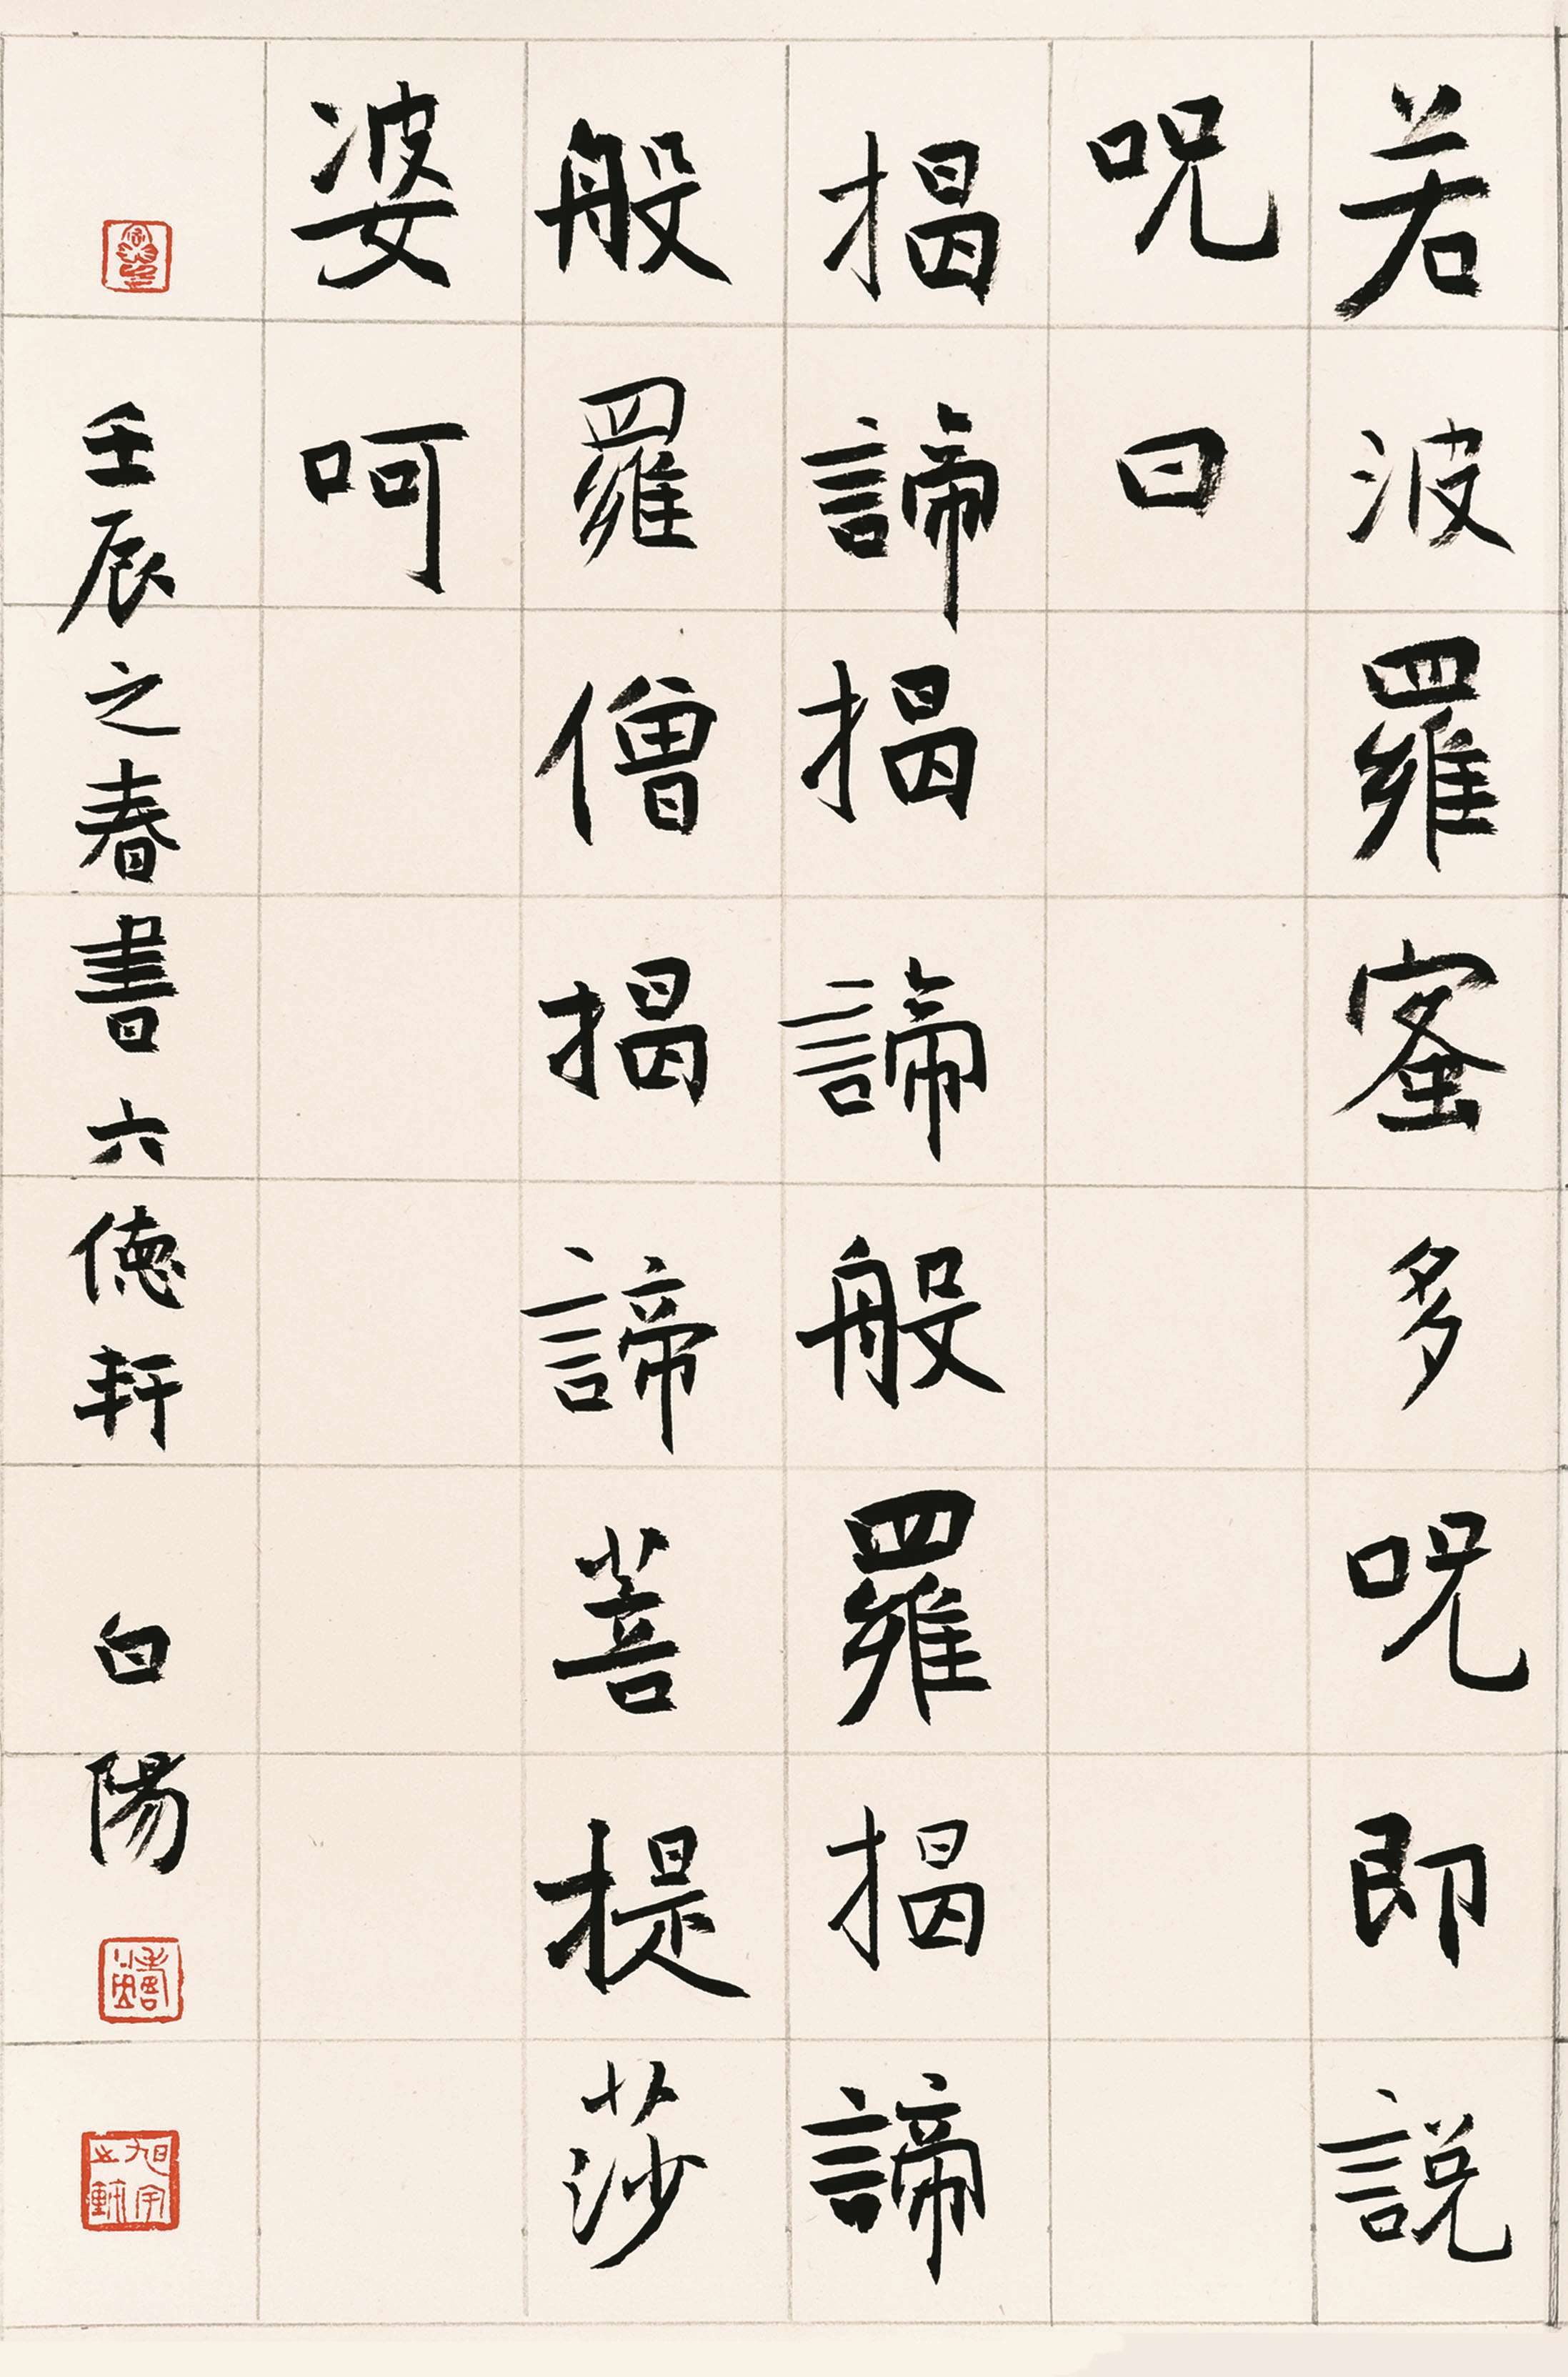 若波羅蜜多呪即説
呪曰
揭諦揭諦般羅揭諦
般羅僧揭諦菩提莎
婆呵
壬辰之春書六德軒 白陽